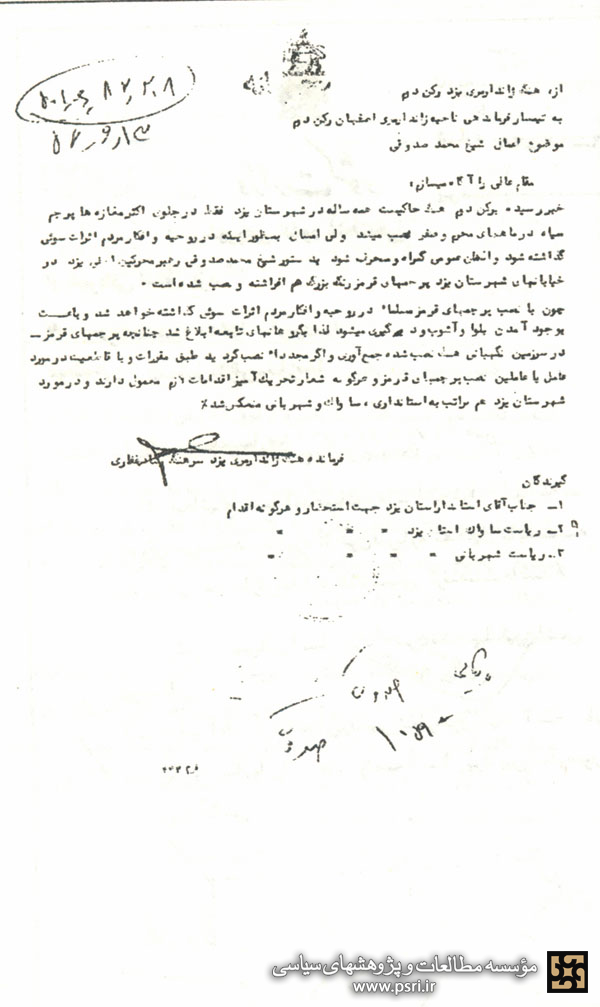 از، هنگ ژاندارمری یزد رکن دوم
به تیمسار فرماندهی ناحیه ژاندارمری اصفهان رکن دوم
موضوع اعمال شیخ محمد صدوقی
مقام عالی را آگاه میسازد:
خبر رسیده برکن دوم هنگ حاکیست همه ساله در شهرستان یزد فقط در جلوی اکثر مغازه ها پرچم
سیاه در ماههای محرم و صفر نصب میشد ولی امسال بمنظور اینکه در روحیه و افکار مردم اثرات سوئی
گذاشته شود و اذهان عمومی گمراه و منحرف شود بدستور شیخ محمد صدوقی رهبر محرکین یزد در
خیابانهای شهرستان یزد پرچمهای قرمز رنگ بزرگ هم افراشته و نصب شده است۰
چون با نصب پرچمهای قرمز مسلما" در روحیه و افکار مردم اثرات سوئی گذاشته خواهد شد و باعث
بوجود آمدن بلوا و آشوب و میگردد لذا بگروهانهای تابعه ابلاغ شد چنانچه پرچمهای قرمز
در سرزمین نگهبانی هنگ نصب شده جمع آوری و اگر مجددا" نصب گردید طبق مقررات و با قاطعیت در مورد
عامل یا عاملین نصب پرچمهای قرمز و هرگونه شعار تحریک آمیز اقدامات لازم معمول دارند و در مورد
شهرستان یزد هم مراتب به استانداری، ساواک و شهربانی منعکس شد٪
فرمانده هنگ ژاندارمری یزد سرهنگ
گیرندگان
۱ـ جناب آقای استاندار استان یزد جهت استحضار و هرگونه اقدام
۲ـ ریاست ساواک استان یزد " " "
۳ـ ریاست شهربانی " " " "
صدوقی
صدوقی
مؤسسه مطالعات و پژوهشهای سیاسی
www.psri.ir